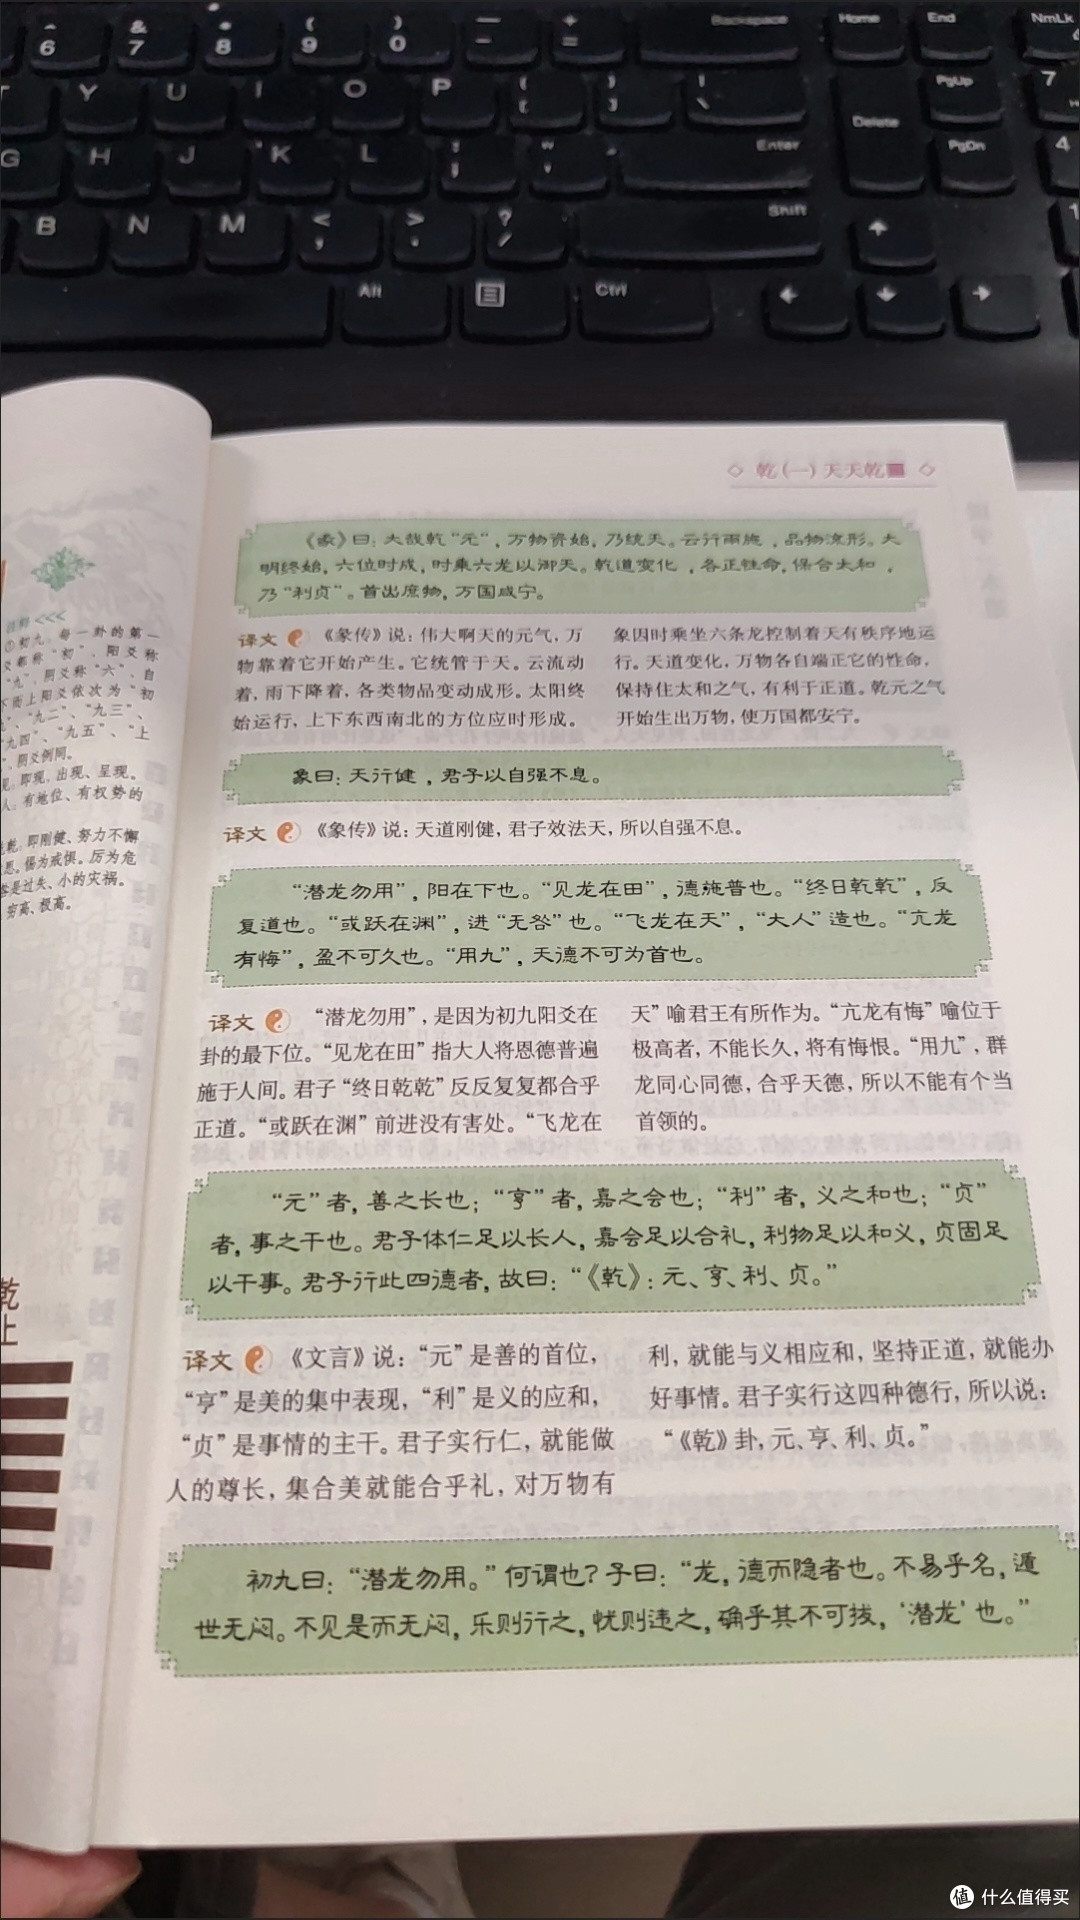 6
&
7
*
8
(
9
)
0
—
-
+
=
Backspace
Home
End
NmLk
Y
U
I
O
P
{
[
}
]
|
\
Delete
PgUp
7
G
H
J
K
L
:
;
"
'
Enter
PgDn
4
B
N
M
<
,
>
.
?
/
Shift
Alt
Ctrl
◇ 乾(一)天天乾 ◇
《彖》曰：大哉乾“元”，万物资始，乃统天。云行雨施，品物流形。大
明终始，六位时成，时乘六龙以御天。乾道变化，各正性命，保合太和，
乃“利贞”。首出庶物，万国咸宁。
译文 《彖传》说：伟大啊天的元气，万
物靠着它开始产生。它统管于天。云流动
着，雨下降着，各类物品变动成形。太阳终
始运行，上下东西南北的方位应时形成。
象因时乘坐六条龙控制着天有秩序地运
行。天道变化，万物各自端正它的性命，
保持住太和之气，有利于正道。乾元之气
开始生出万物，使万国都安宁。
象曰：天行健，君子以自强不息。
译文 《象传》说：天道刚健，君子效法天，所以自强不息。
“潜龙勿用”，阳在下也。“见龙在田”，德施普也。“终日乾乾”，反
复道也。“或跃在渊”，进“无咎”也。“飞龙在天”，“大人”造也。“亢龙
有悔”，盈不可久也。“用九”，天德不可为首也。
译文 “潜龙勿用”，是因为初九阳爻在
卦的最下位。“见龙在田”指大人将恩德普遍
施于人间。君子“终日乾乾”反反复复都合乎
正道。“或跃在渊”前进没有害处。“飞龙在
天”喻君王有所作为。“亢龙有悔”喻位于
极高者，不能长久，将有悔恨。“用九”，群
龙同心同德，合乎天德，所以不能有个当
首领的。
“元”者，善之长也；“亨”者，嘉之会也；“利”者，义之和也；“贞”
者，事之干也。君子体仁足以长人，嘉会足以合礼，利物足以和义，贞固足
以干事。君子行此四德者，故曰：“《乾》：元、亨、利、贞。”
译文 《文言》说：“元”是善的首位，
“亨”是美的集中表现，“利”是义的应和，
“贞”是事情的主干。君子实行仁，就能做
人的尊长，集合美就能合乎礼，对万物有
利，就能与义相应和，坚持正道，就能办
好事情。君子实行这四种德行，所以说：
“《乾》卦，元、亨、利、贞。”
初九曰：“潜龙勿用。”何谓也？子曰：“龙，德而隐者也。不易乎名，遁
世无闷。不见是而无闷，乐则行之，忧则违之，确乎其不可拔，‘潜龙’也。”
<<<
①初九：每一卦的第一
爻都称“初”，阳爻称
“九”，阴爻称“六”，自
下而上阳爻依次为“初
“九二”、“九三”、
“九四”、“九五”、“上
，阴爻例同。
见，即现，出现、呈现。
人，有地位、有权势的
乾，即刚健、努力不懈
思。惕为戒惧。厉为危
咎是过失、小的灾祸。
穷高、极高。
乾
上
值 什么值得买